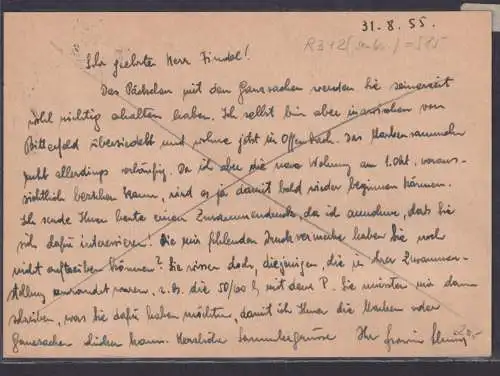 31.-8. 55.
R3+2 =515
Sehr geehrter Herr Zindel!
Das Päckchen mit den Ganzsachen werden Sie seinerzeit
wohl richtig erhalten haben. Ich selbst bin aber inzwischen von
Bitterfeld übersiedelt und wohne jetzt in Offenbach. Das Markensammeln
ruht allerdings vorläufig. Da ich aber die neue Wohnung am 1. Okt. voraus-
sichtlich beziehen kann, wird es ja damit bald wieder beginnen können.
Ich sende Ihnen heute einen Zusammendruck, da ich annehme, daß Sie
sich dafür interessieren! Die mir fehlenden Druckvermerke haben Sie noch
nicht auftreiben können? Sie wissen doch, diejenigen, die in Ihrer Zusammen-
stellung umrandet waren, z. Bs. die 50/00 mit dem P. Sie müssten mir dann
schreiben, was Sie dafür haben möchten, damit ich Ihnen die Marken oder
Ganzsachen schicken kann. Herzliche Sammlergrüsse Ihr Erwin